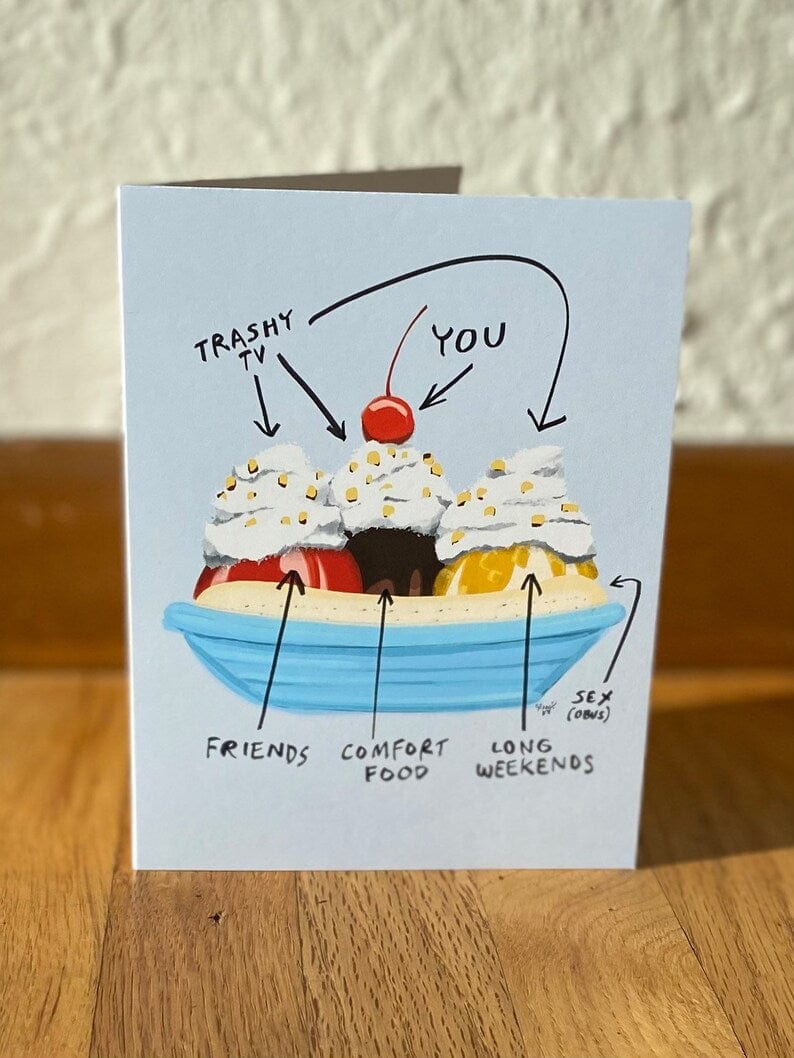 TRASHY
TV
YOU
FRIENDS
COMFORT
FOOD
LONG
WEEKENDS
SEX
(OBVS)